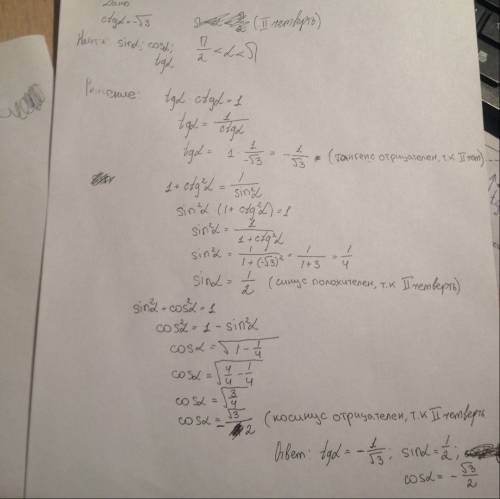 Дано
ctgα = -√3 (II четверть)
Найти: sinα; cosα; π/2 < α < π
tgα
Решение:
tgα · ctgα = 1
tgα = 1/ctgα
tgα = 1 · 1/-√3 = -1/√3 (тангенс отрицателен, т.к II чет)
1 + ctg²α = 1/sin²α
sin²α · (1 + ctg²α) = 1
sin²α = 1/1+ctg²α
sin²α = 1/1+(-√3)² = 1/1+3 = 1/4
sinα = 1/2 (синус положителен, т.к II четверть)
sin²α + cos²α = 1
cos²α = 1 - sin²α
cosα = √1 - 1/4
cosα = √4/4 - 1/4
cosα = √3/4
cosα = -√3/2 (косинус отрицателен, т.к II четверть
Ответ: tgα = -1/√3, sinα = 1/2;
cosα = -√3/2